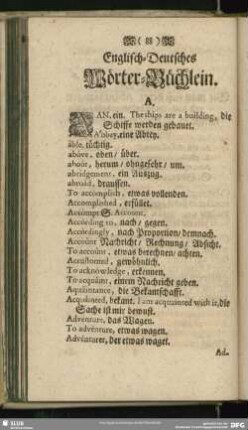 ( 88 )
Englisch-Deutsches
Wörter-Büchlein.
A.
AAN. ein. The ships are a building, die
Schiffe werden gebauet.
Abbey, eine Abtey.
able, tüchtig.
above, oben/ über.
about, herum/ ohngefehr/ um.
abridgement, ein Auszug.
abroad, draussen.
To accomplish, etwas vollenden.
Accomplished, erfüllet.
Accompt S. Account.
According to, nach/ gegen.
Accordingly, nach Proportion/ demnach.
Account Nachricht/ Rechnung/ Absicht.
To account, etwas berechnen/ achten.
Accustomed, gewöhnlich.
To acknowledge, erkennen.
To acquaint, einem Nachricht geben.
Aquaintance, die Bekantschafft.
Acquainted, bekant. I am acquainted with it, die
Sache ist mir bewust.
Adventure, das Wagen.
To adventure, etwas wagen.
Adventurer, der etwas waget.
Ad-
SLUB
DFG